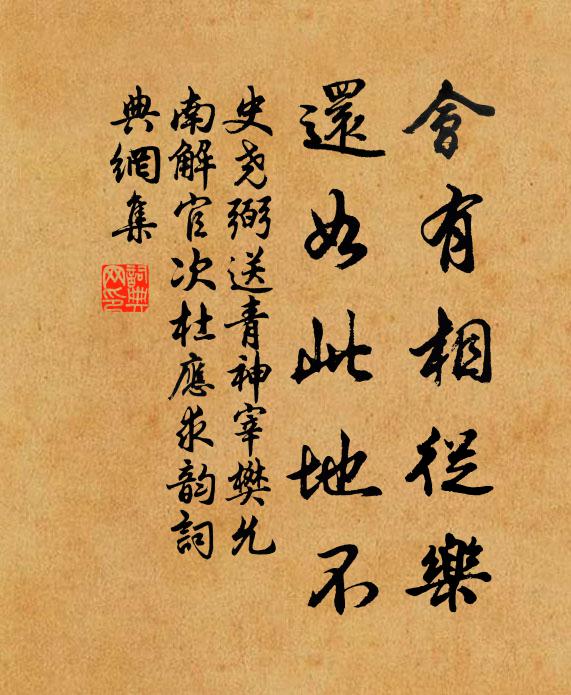 會有相從樂
還如此地不
史堯弼送青神宰樊允
南解官次杜應求韵詞
典網集
詞典
网印